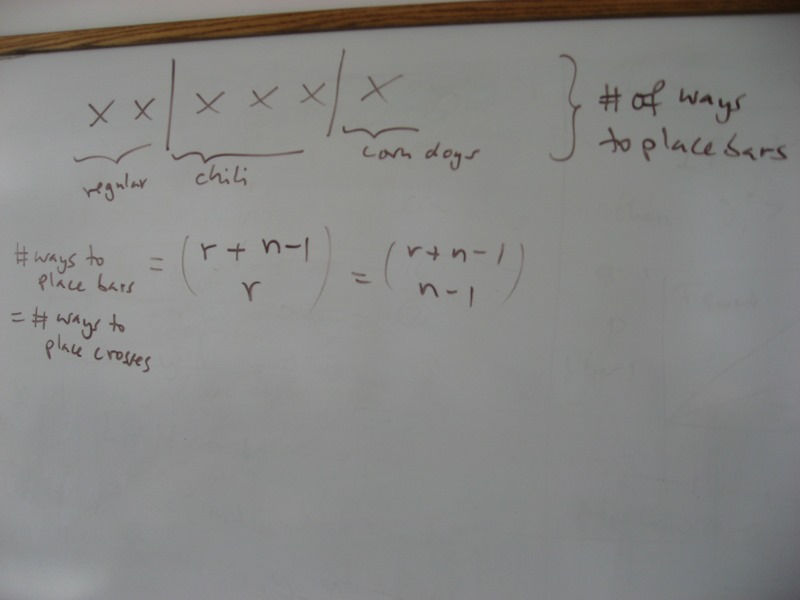 x x | x x x | x } # of ways
to place bars
regular chili corn dogs
# ways to place bars = (r + n-1 r) = (r+n-1 n-1)
= # ways to
place crosses